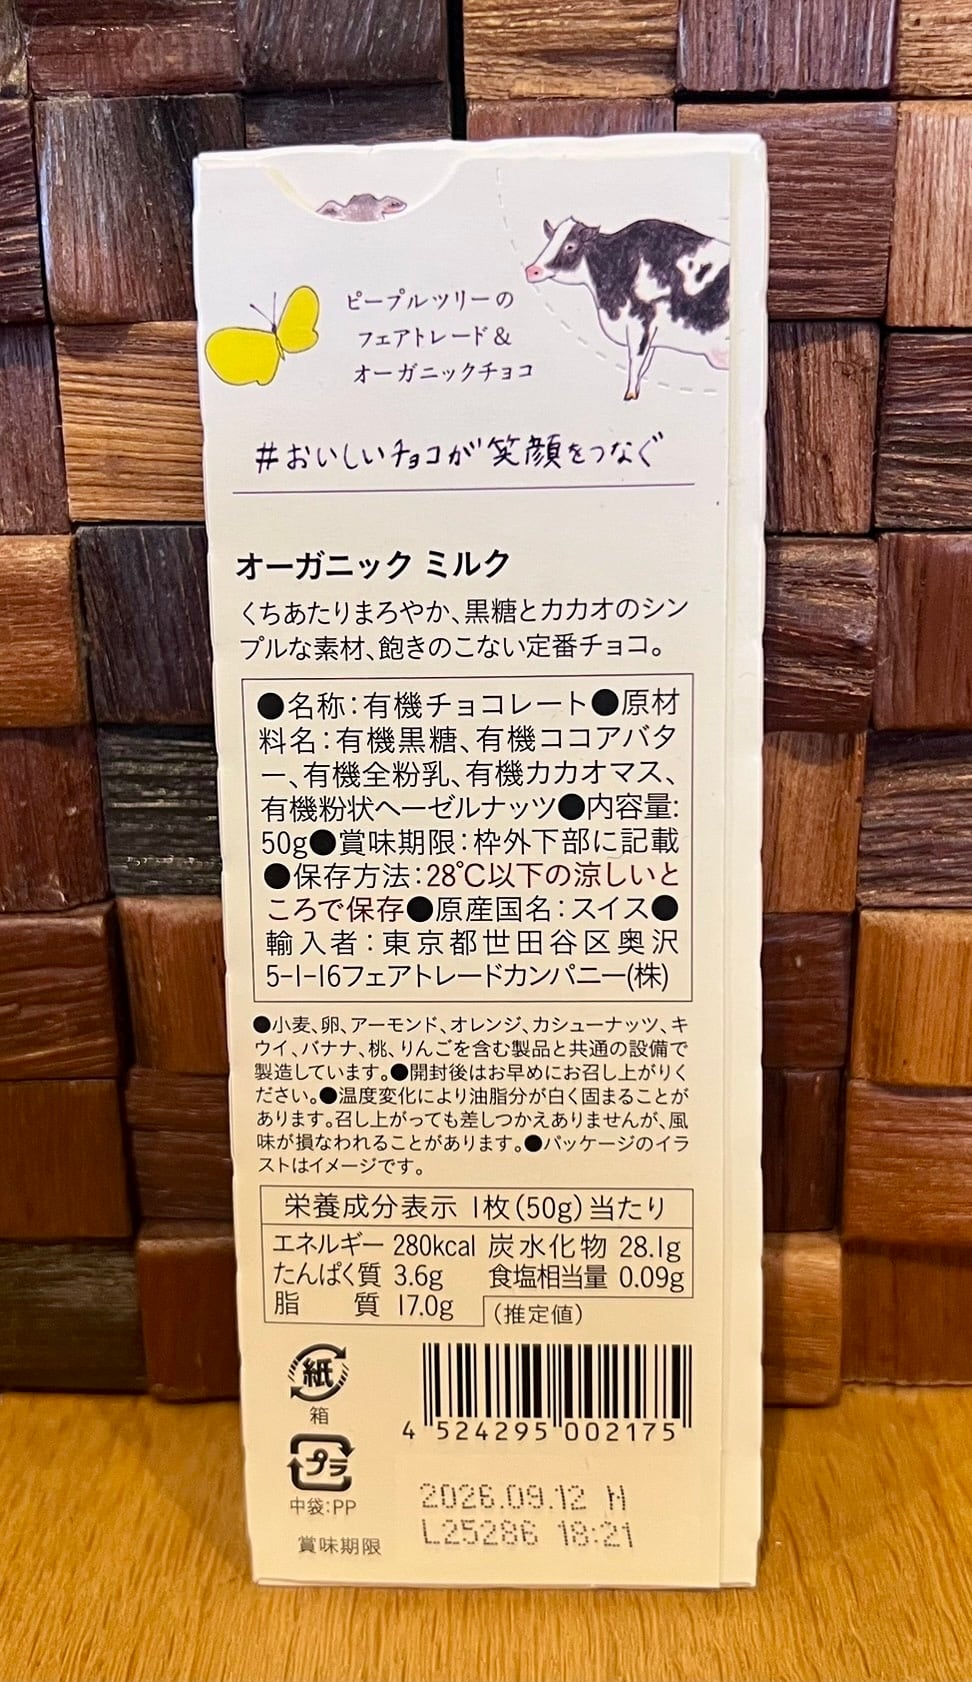 ピープルツリーの
フェアトレード&
オーガニックチョコ
#おいしいチョコが笑顔をつなぐ
オーガニック ミルク
くちあたりまろやか、黒糖とカカオのシン
プルな素材、飽きのこない定番チョコ。
●名称:有機チョコレート●原材
料名:有機黒糖、有機ココアバタ
ー、有機全粉乳、有機カカオマス、
有機粉状ヘーゼルナッツ●内容量:
50g●賞味期限:枠外下部に記載
●保存方法:28℃以下の涼しいと
ころで保存●原産国名:スイス●
輸入者:東京都世田谷区奥沢
5-1-16フェアトレードカンパニー(株)
●小麦、卵、アーモンド、オレンジ、カシューナッツ、キ
ウイ、バナナ、桃、りんごを含む製品と共通の設備で
製造しています。●開封後はお早めにお召し上がりく
ださい。●温度変化により油脂分が白く固まることが
あります。召し上がっても差しつかえありませんが、風
味が損なわれることがあります。●パッケージのイラ
ストはイメージです。
栄養成分表示 1枚(50g)当たり
エネルギー 280kcal 炭水化物 28.1g
たんぱく質 3.6g 食塩相当量 0.09g
脂 質 17.0g (推定値)
紙
箱
プラ
中袋:PP
4 524295 002175
2026.09.12 H
L25286 18:21
賞味期限